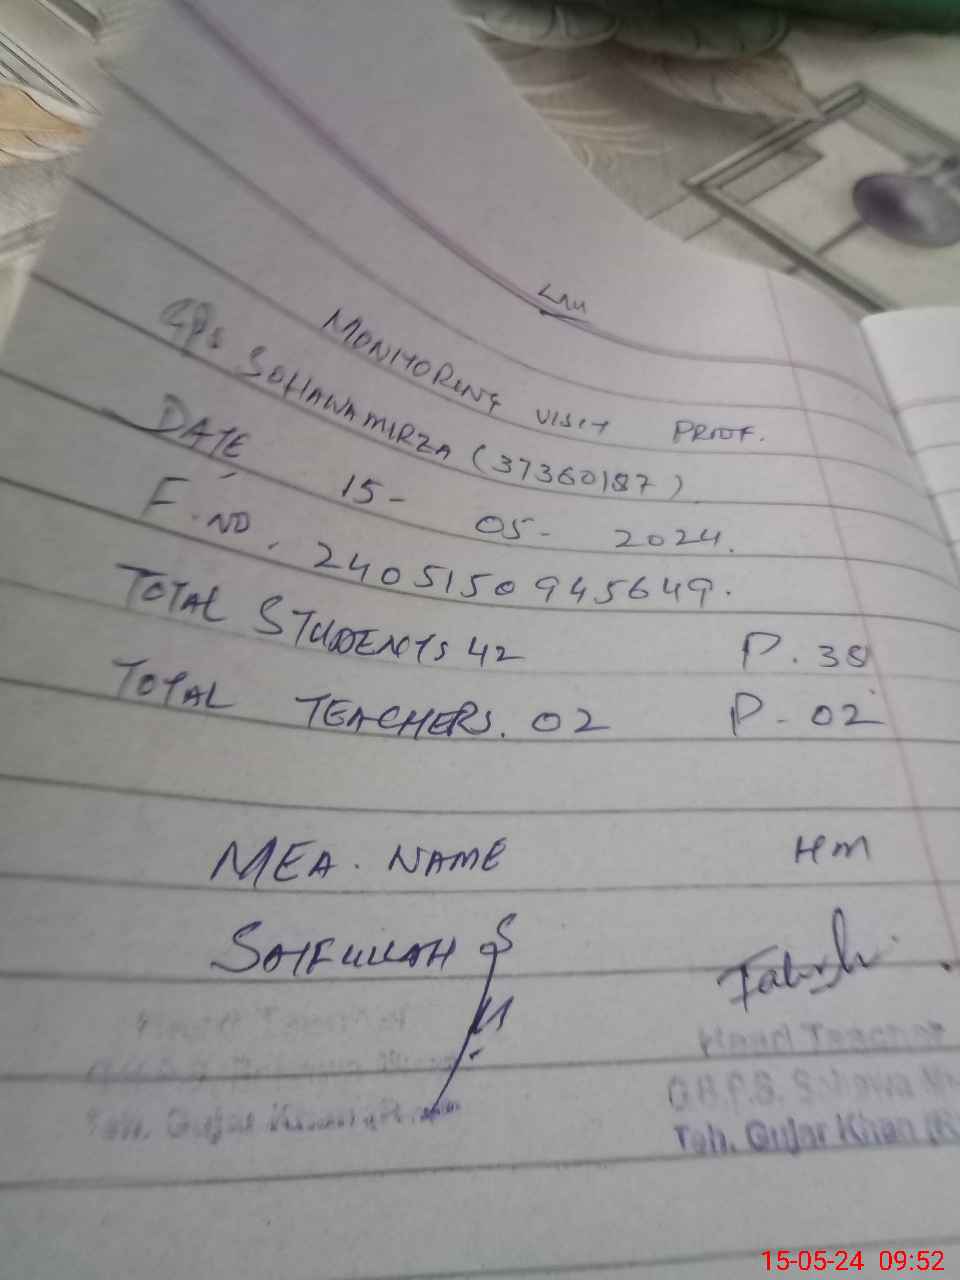 MONITORING VISIT PROOF.
GPS SOHAWA MIRZA (37360187)
DATE 15- 05- 2024.
F.NO. 2405150945649.
TOTAL STUDENTS 42 P. 38
TOTAL TEACHERS. 02 P- 02
MEA. NAME HM
SAIFULLAH
Head Teacher
G.B.P.S. Sohawa
Teh. Gujar Khan
Teh. Gujar Khan
15-05-24 09:52